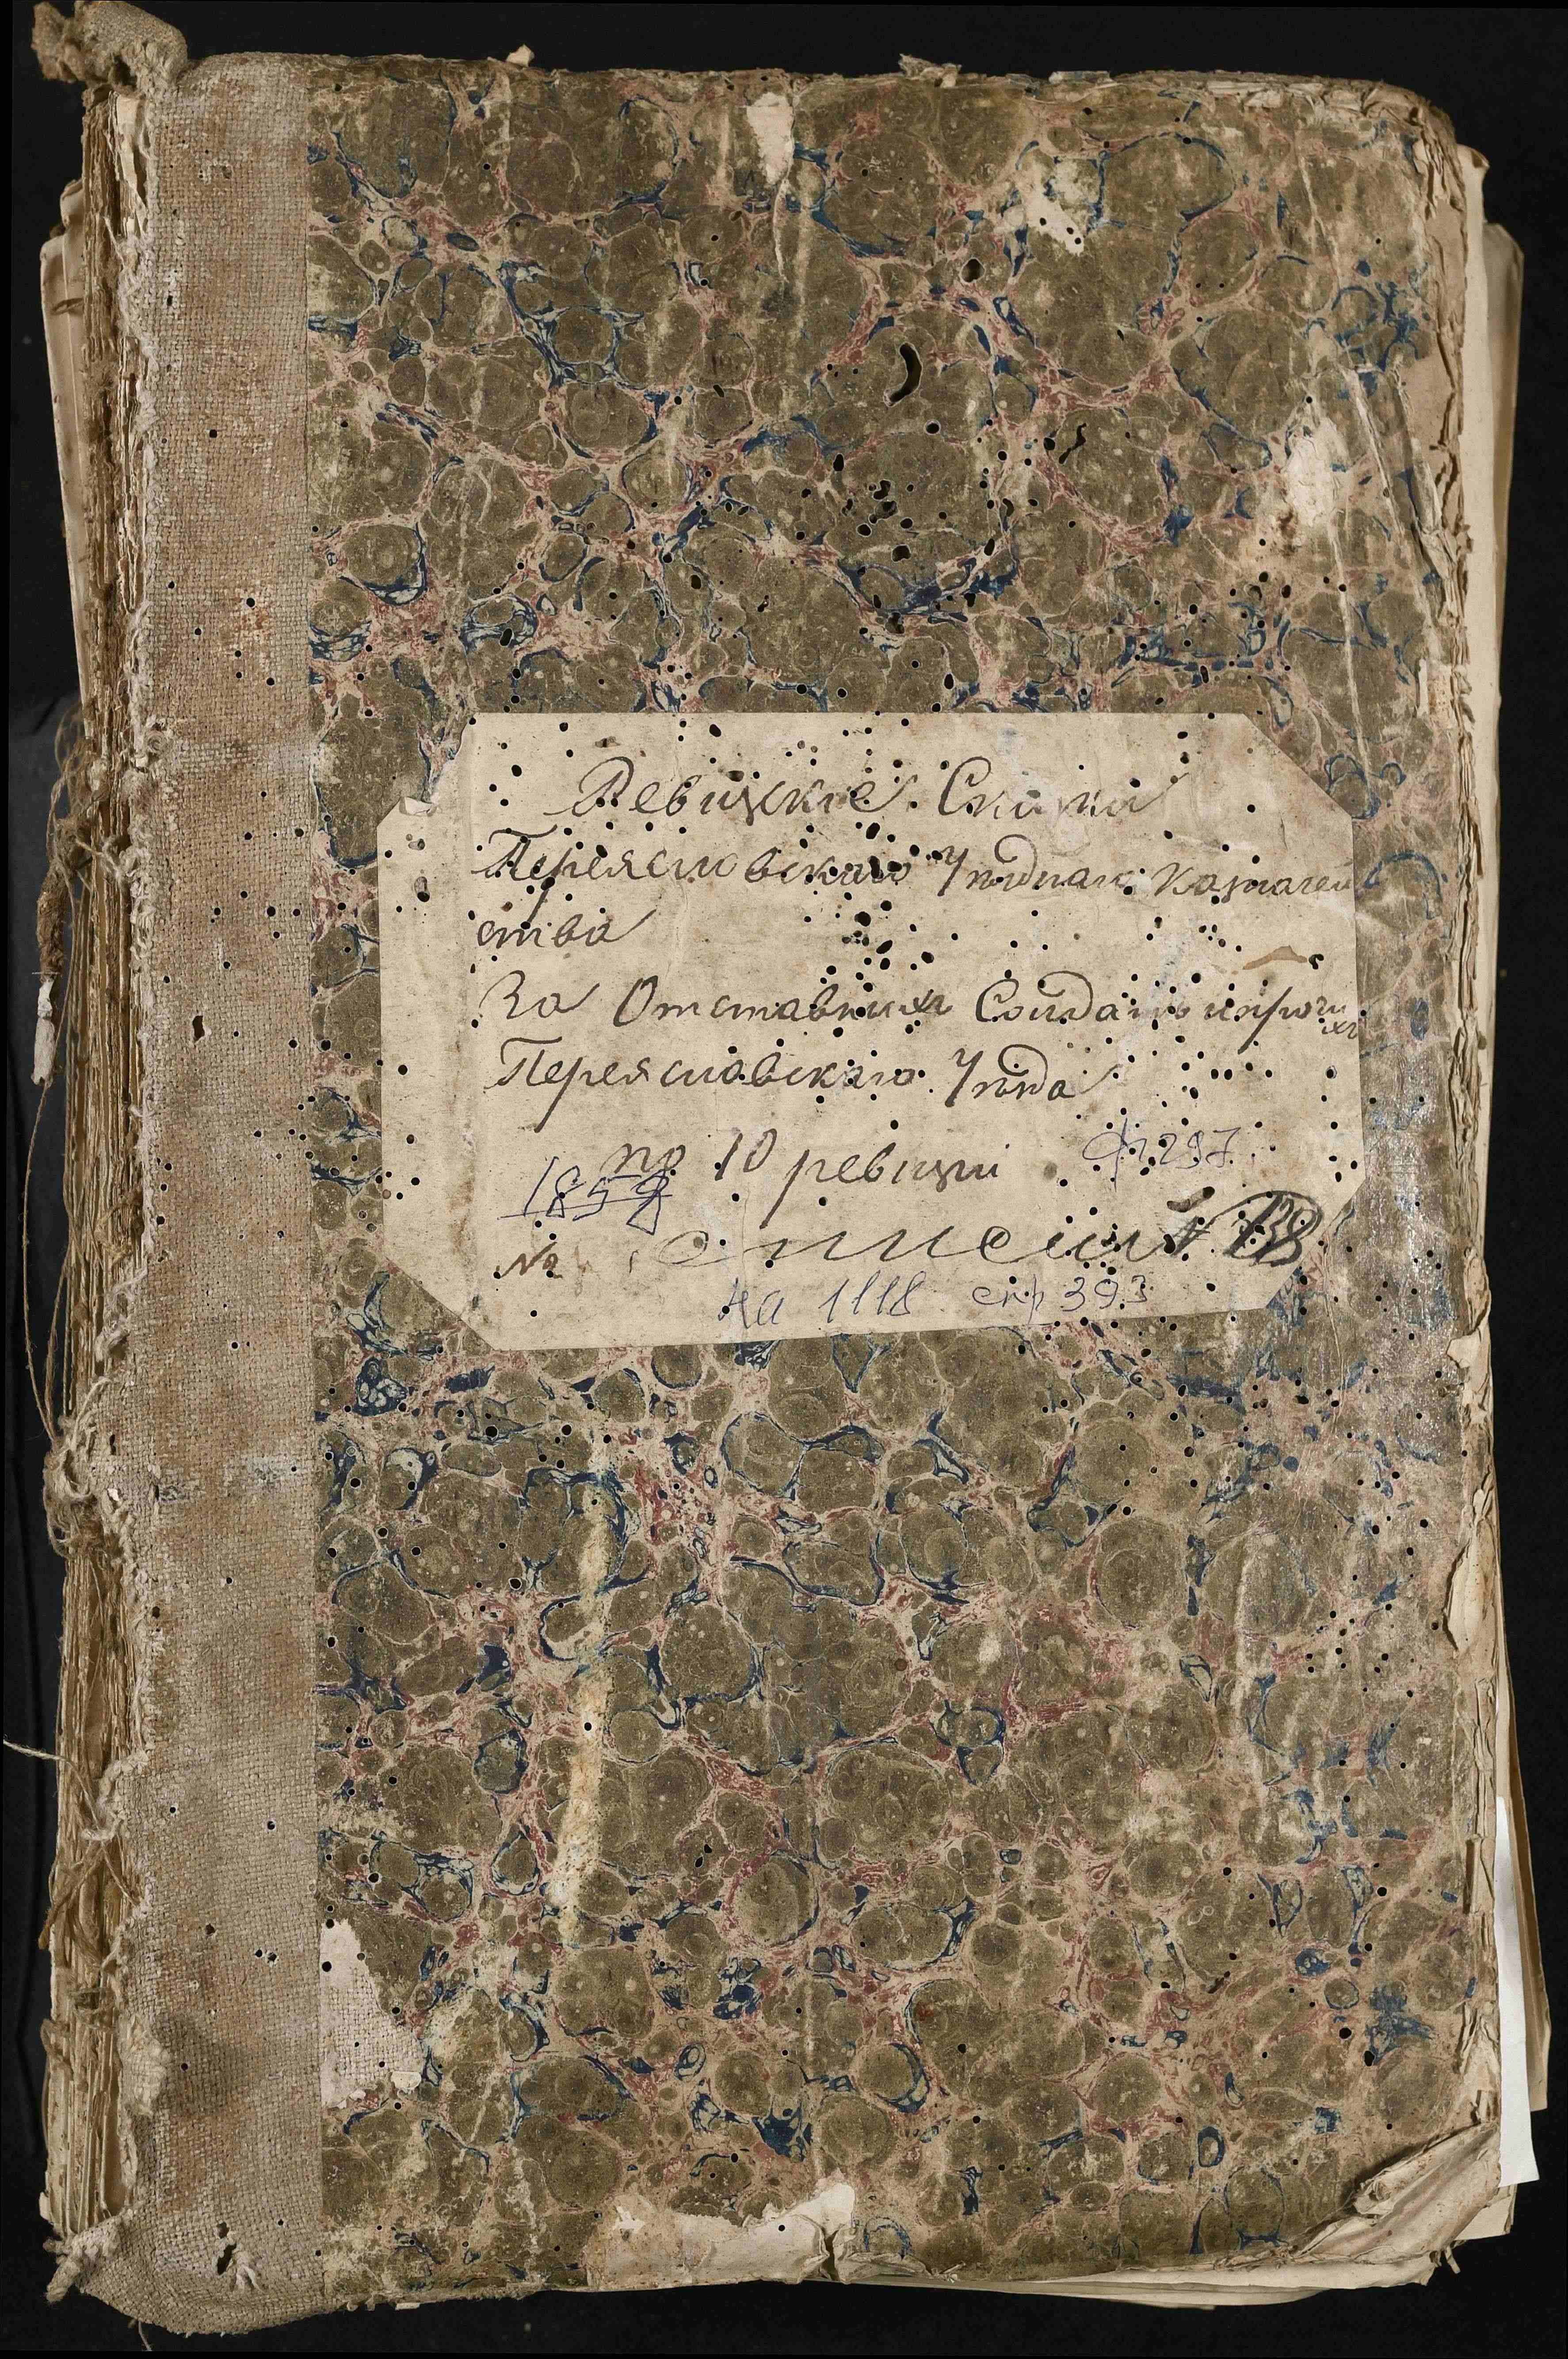 Ревизские Сказки
Переяславскаго Уѣзднаго Казначей
ства
За Отставных Солдатъ и прочи
хъ
Переяславскаго Уѣзда
по 10 ревизіи ф 297
185
№ описи № 138
На 1118 стр 393